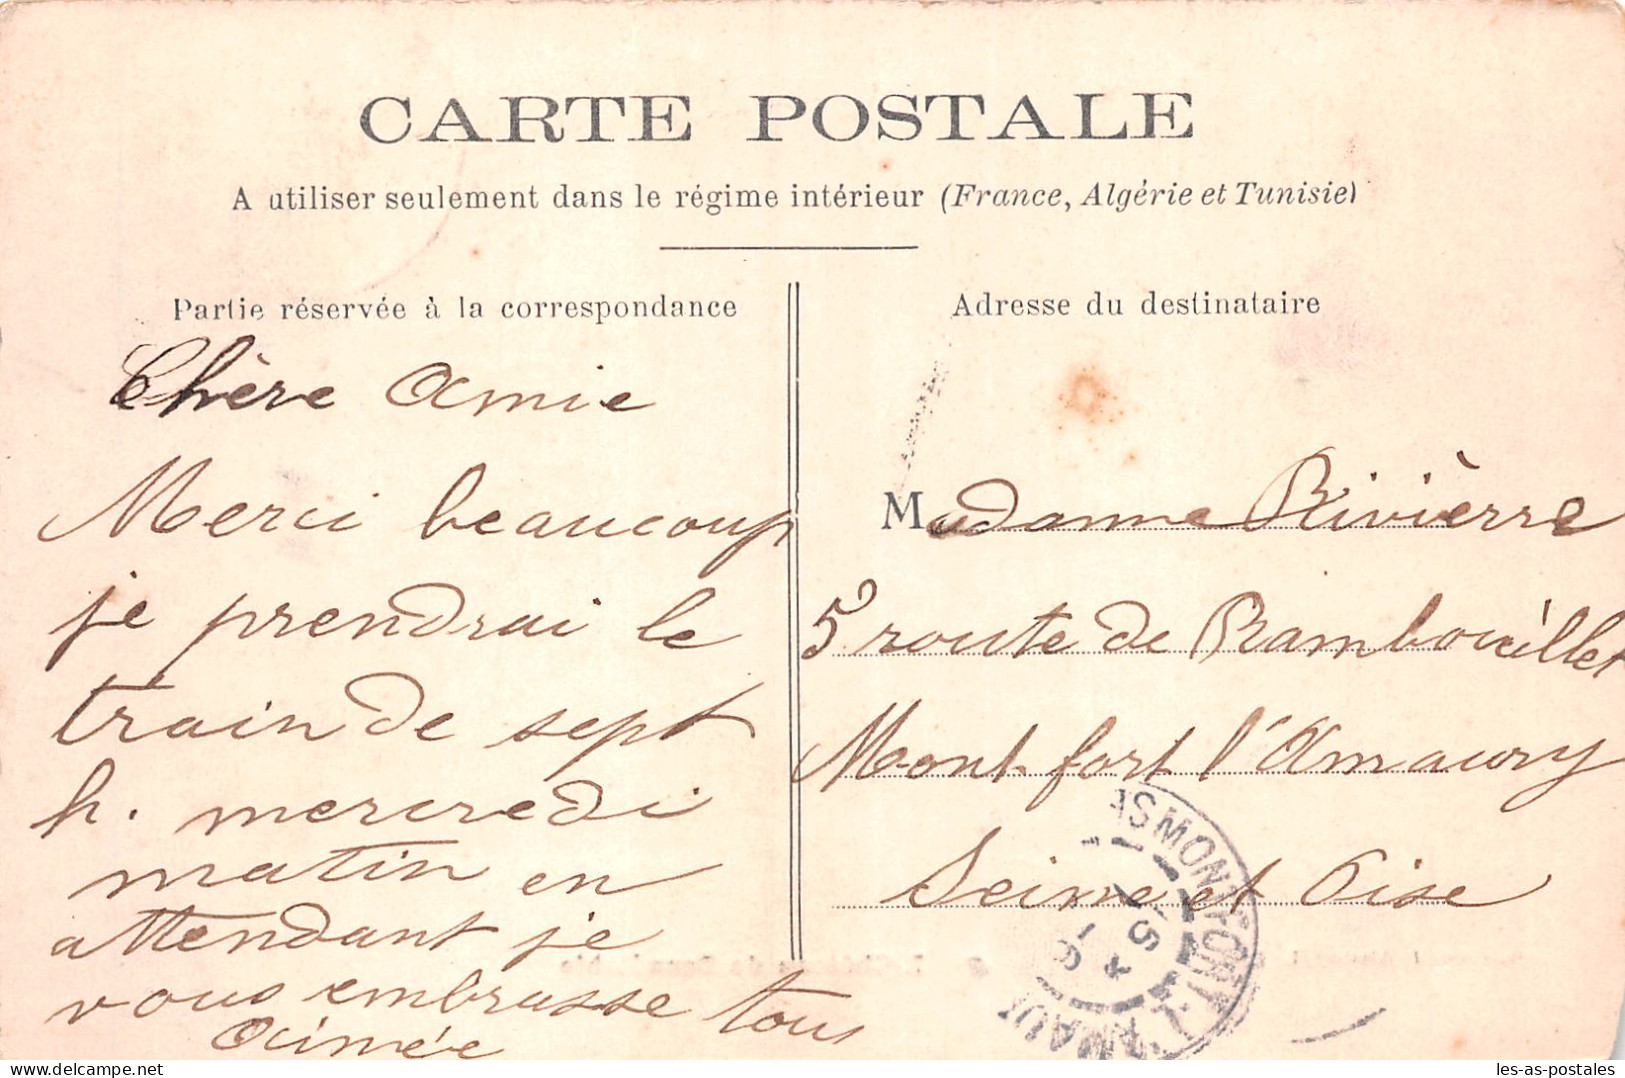 CARTE POSTALE
A utiliser seulement dans le régime intérieur (France, Algérie et Tunisie)
Partie réservée à la correspondance
Chère Amie
Merci beaucoup
je prendrai le
train de sept
h. mercredi
matin en
attendant je
vous embrasse tous
Aimée
Adresse du destinataire
Madame Rivièrre
5 route de Rambouillet
Montfort l'Amaury
Seine et Oise
MONTFORT-L'AMAU
les-as-postales